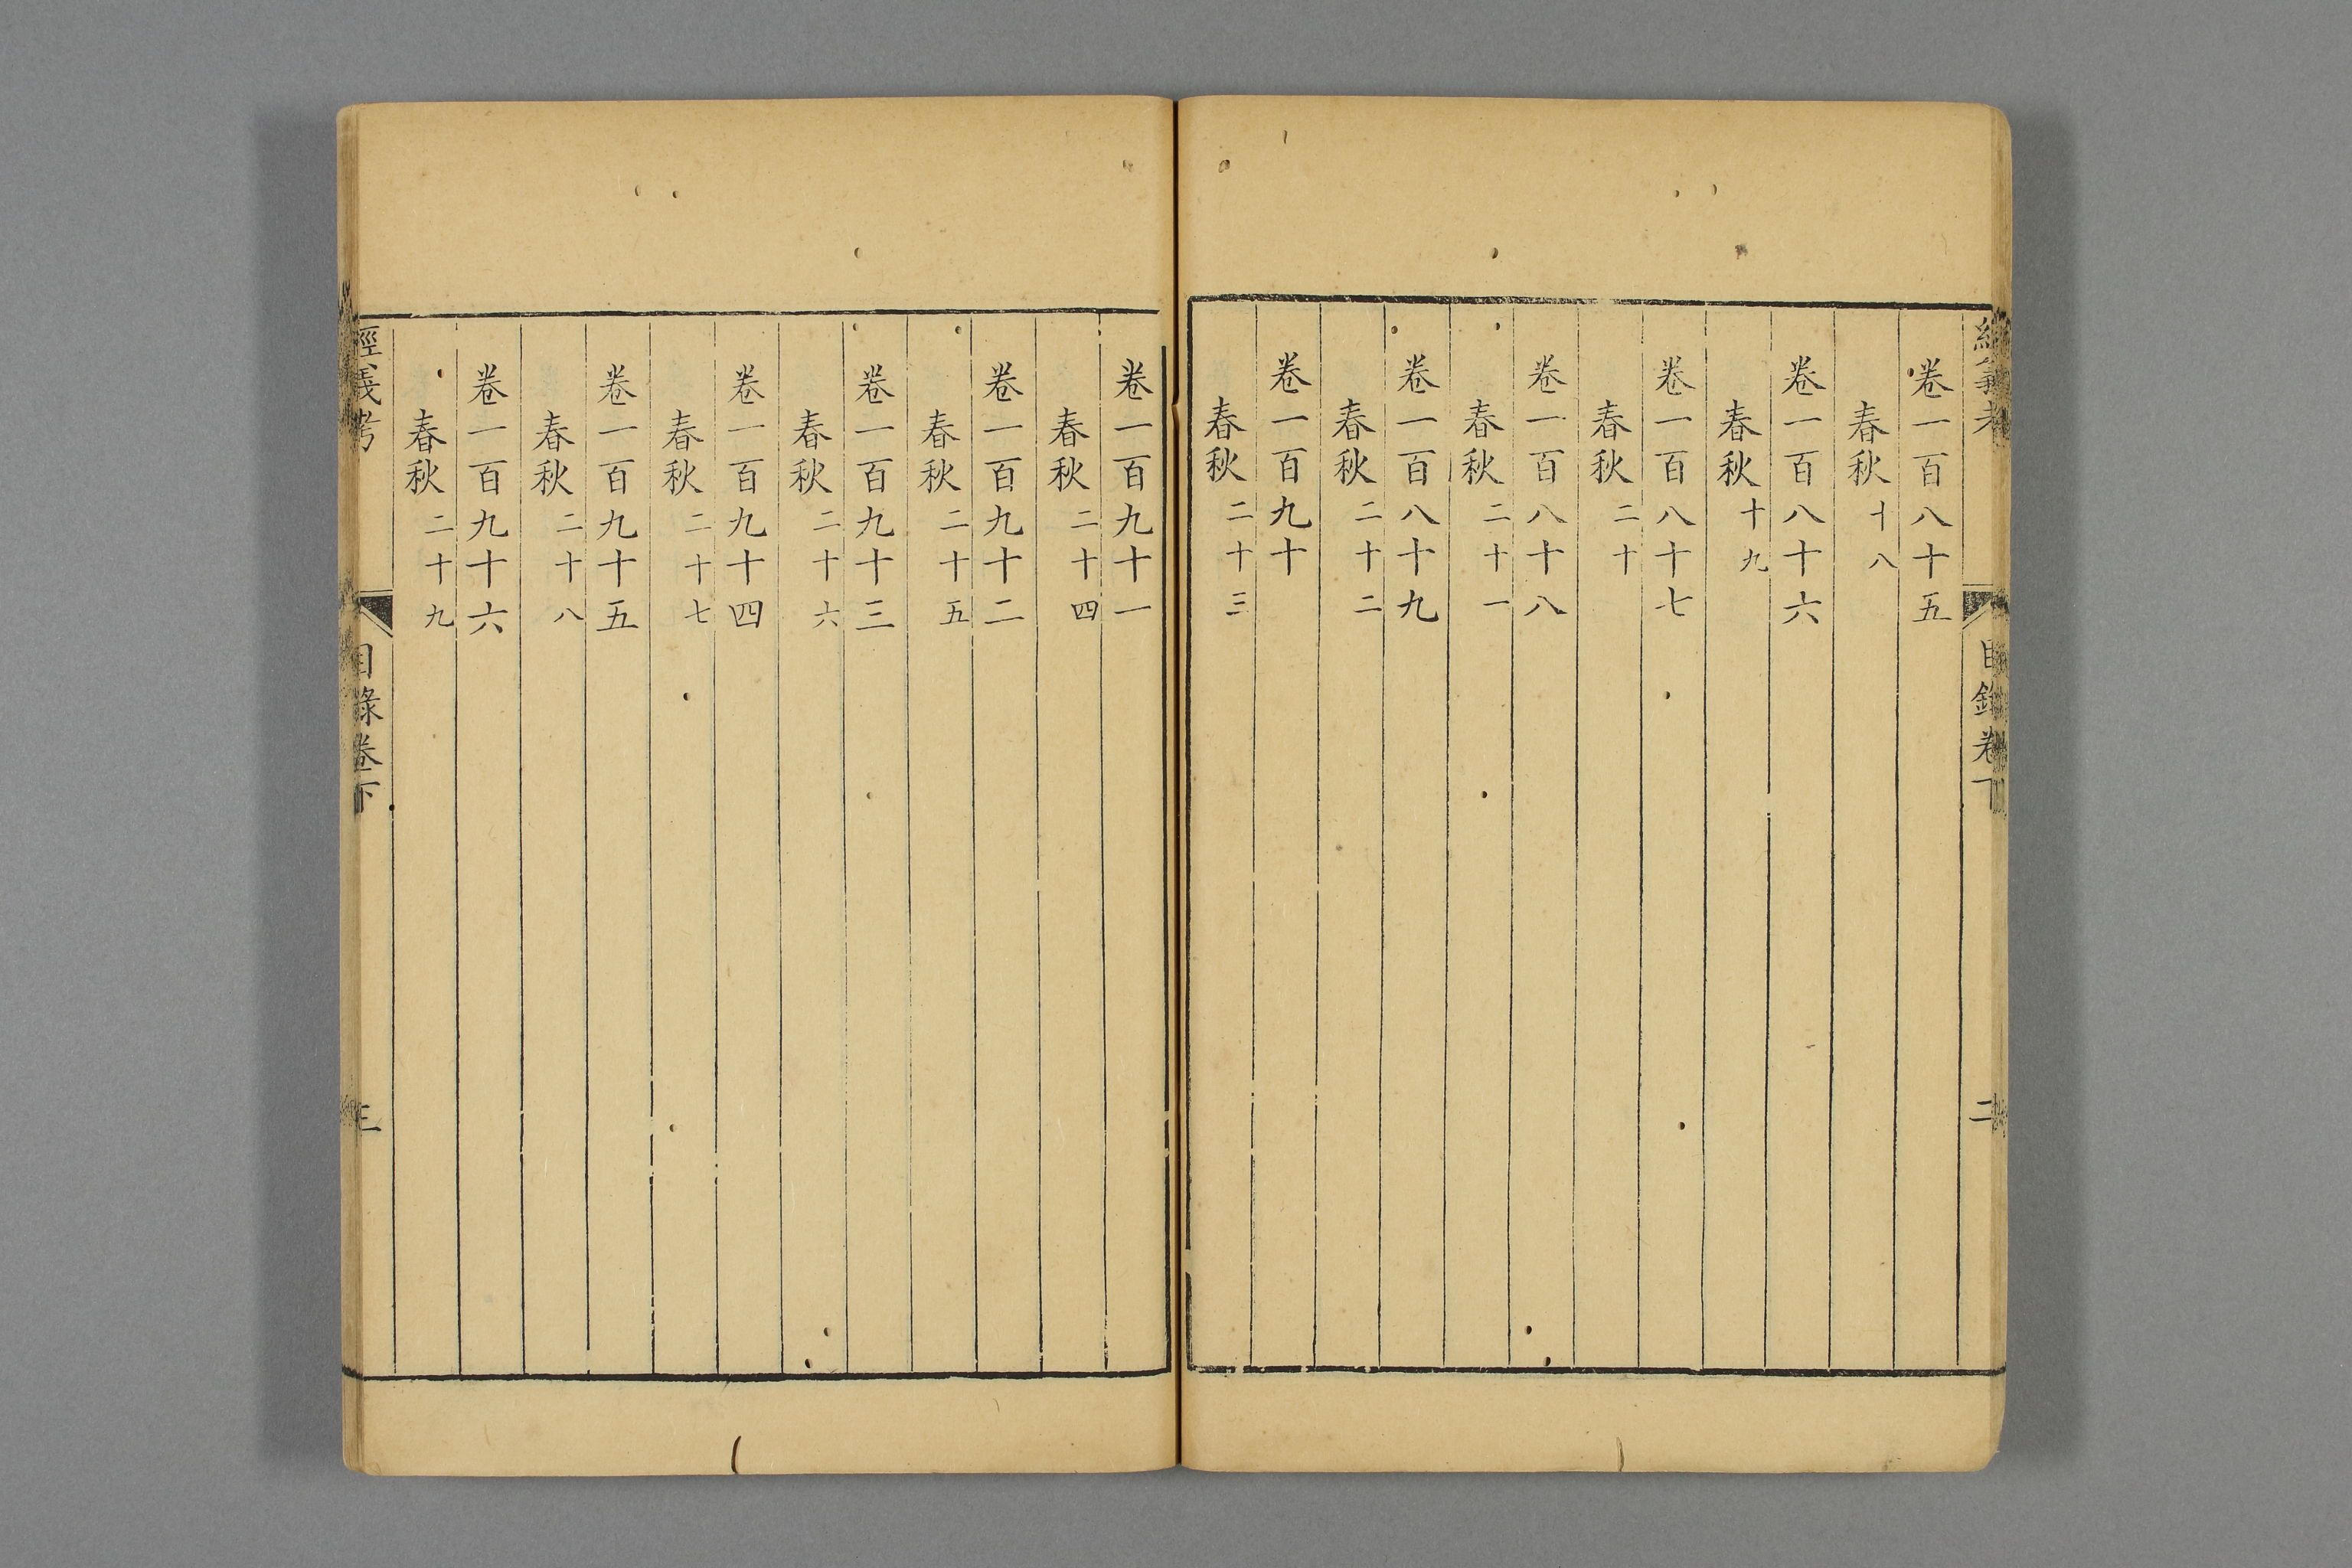 經義考
目錄卷下
二
卷一百八十五
春秋十八
卷一百八十六
春秋十九
卷一百八十七
春秋二十
卷一百八十八
春秋二十一
卷一百八十九
春秋二十二
卷一百九十
春秋二十三
卷一百九十一
春秋二十四
卷一百九十二
春秋二十五
卷一百九十三
春秋二十六
卷一百九十四
春秋二十七
卷一百九十五
春秋二十八
卷一百九十六
春秋二十九
經義考
目錄卷下
三